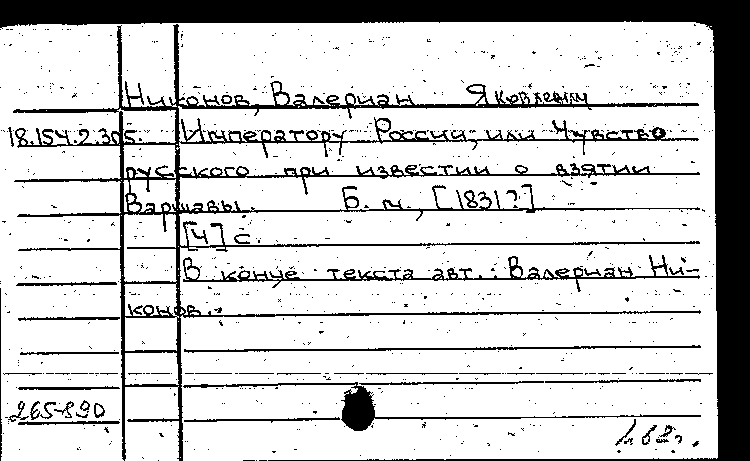 Никонов, Валериан Яковлевич
18.154.2.305. Императору России, или Чувство
русского при известии о взятии
Варшавы. Б. м., [1831?]
[4] с.
В конце текста авт.: Валериан Ни-
конов.
265-890